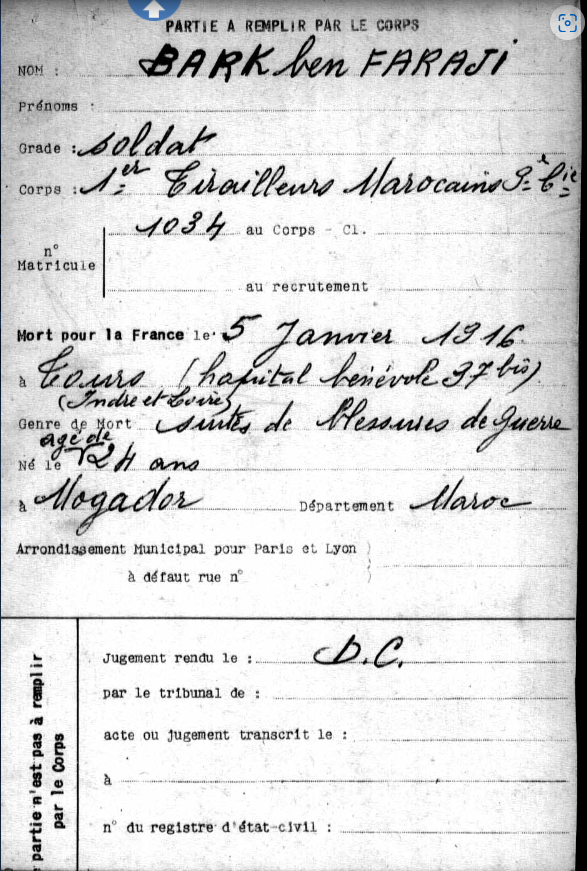 PARTIE A REMPLIR PAR LE CORPS
NOM : BARK ben FARAJI
Prénoms :
Grade : soldat
Corps : 1er Tirailleurs Marocains 9e Cie
1034 au Corps - Cl.
n°
Matricule
au recrutement
Mort pour la France le 5 Janvier 1916
à Tours (hôpital bénévole 97 bis)
(Indre et Loire)
Genre de Mort suites de blessures de guerre
agé de
Né le 24 ans
à Mogador Département Maroc
Arrondissement Municipal pour Paris et Lyon
à défaut rue n°
Jugement rendu le : D.C.
par le tribunal de :
acte ou jugement transcrit le :
à
n° du registre d'état-civil :
partie n'est pas à remplir
par le Corps